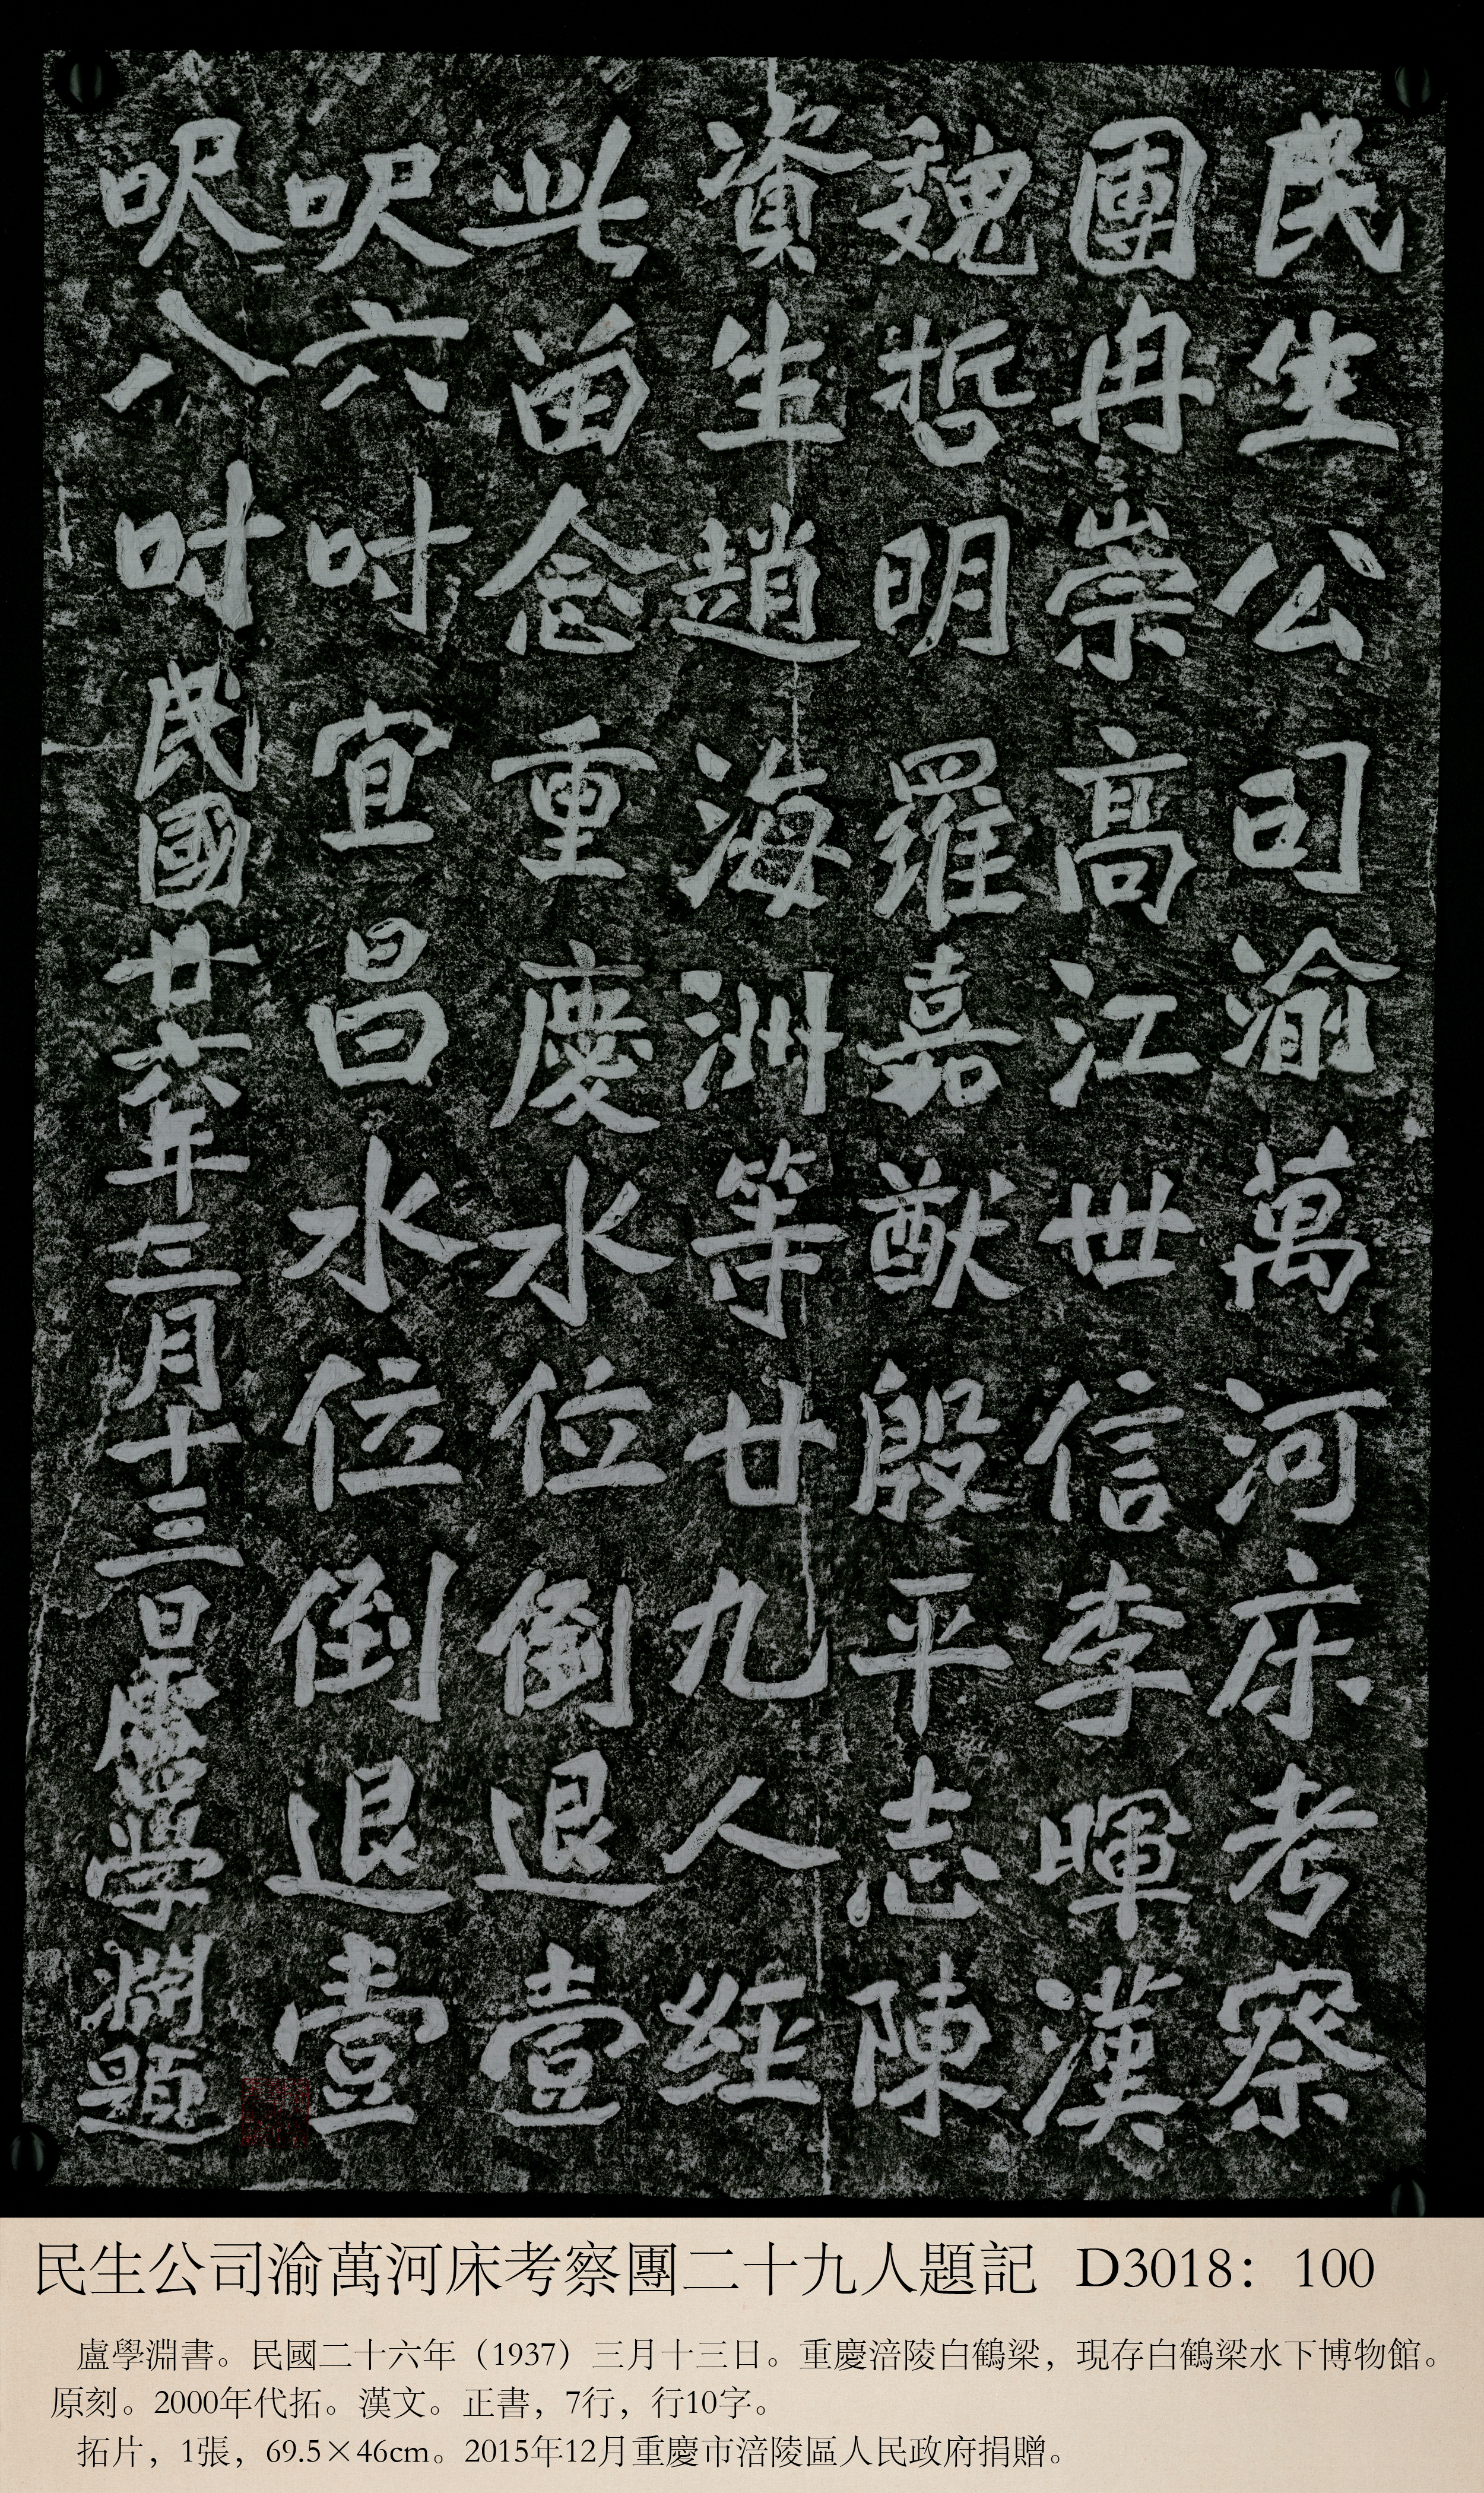 民生公司渝萬河床考察
團冉崇高江世信李暉漢
魏哲明羅嘉猷殷平志陳
資生趙海洲等廿九人經
此留念重慶水位倒退壹
呎六吋宜昌水位倒退壹
呎八吋民國廿六年三月十三日盧學淵題
民生公司渝萬河床考察團二十九人題記 D3018：100
盧學淵書。民國二十六年（1937）三月十三日。重慶涪陵白鶴梁，現存白鶴梁水下博物館。
原刻。2000年代拓。漢文。正書，7行，行10字。
拓片，1張，69.5×46cm。2015年12月重慶市涪陵區人民政府捐贈。